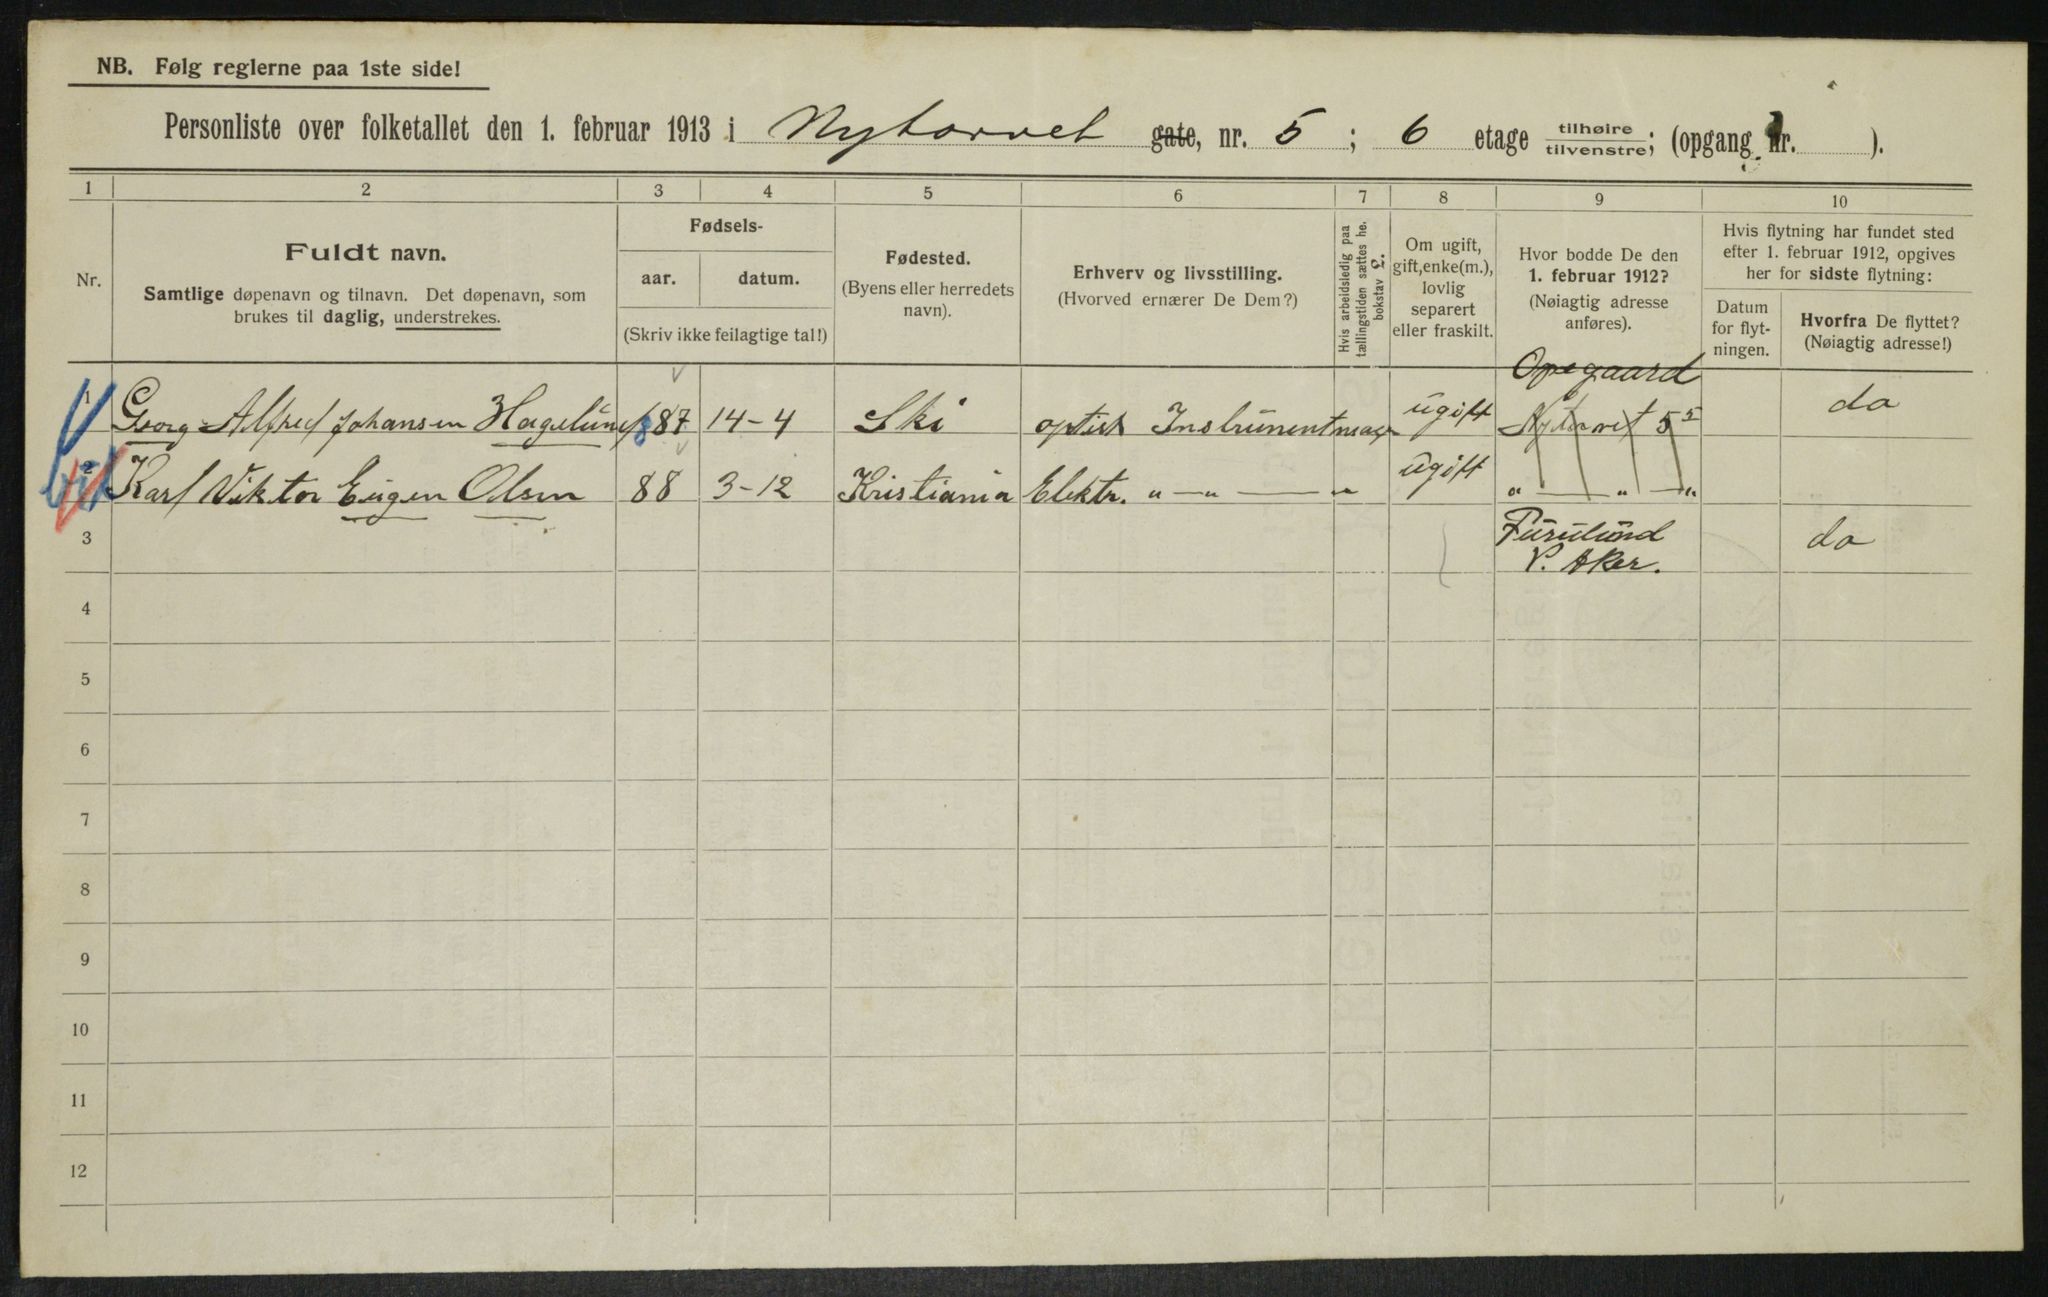 NB. Følg reglerne paa 1ste side!
Personliste over folketallet den 1. februar 1913 i Nytorvet gate, nr. 5 ; 6 etage tilhøire tilvenstre; (opgang nr. ).
1 2 3 4 5 6 7 8 9 10
Nr.
Fuldt navn.
Samtlige døpenavn og tilnavn. Det døpenavn, som
brukes til daglig, understrekes.
Fødsels-
aar. datum.
(Skriv ikke feilagtige tal!)
Fødested.
(Byens eller herredets
navn).
Erhverv og livsstilling.
(Hvorved ernærer De Dem?)
Hvis arbeidsledig paa
tællingstiden sættes he.
bokstav L.
Om ugift,
gift, enke(m.),
lovlig
separert
eller fraskilt.
Hvor bodde De den
1. februar 1912?
(Nøiagtig adresse
anføres).
Hvis flytning har fundet sted
efter 1. februar 1912, opgives
her for sidste flytning:
Datum
for flyt-
ningen.
Hvorfra De flyttet?
(Nøiagtig adresse!)
Opegaard
1 Georg Alfred Johansen Hagelund 887 14-4 Ski optisk Instrumentmager ugift Nytorvet 5 5 do
2 Karl Viktor Eugen Olsen 88 3-12 Kristiania Elektr. " — " — " ugift " — " — "
3 Furulund do
V. Aker.
4
5
6
7
8
9
10
11
12